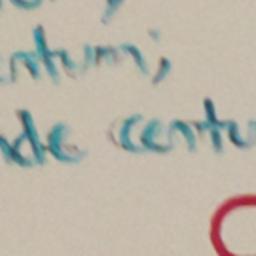 ntum;
nde centu